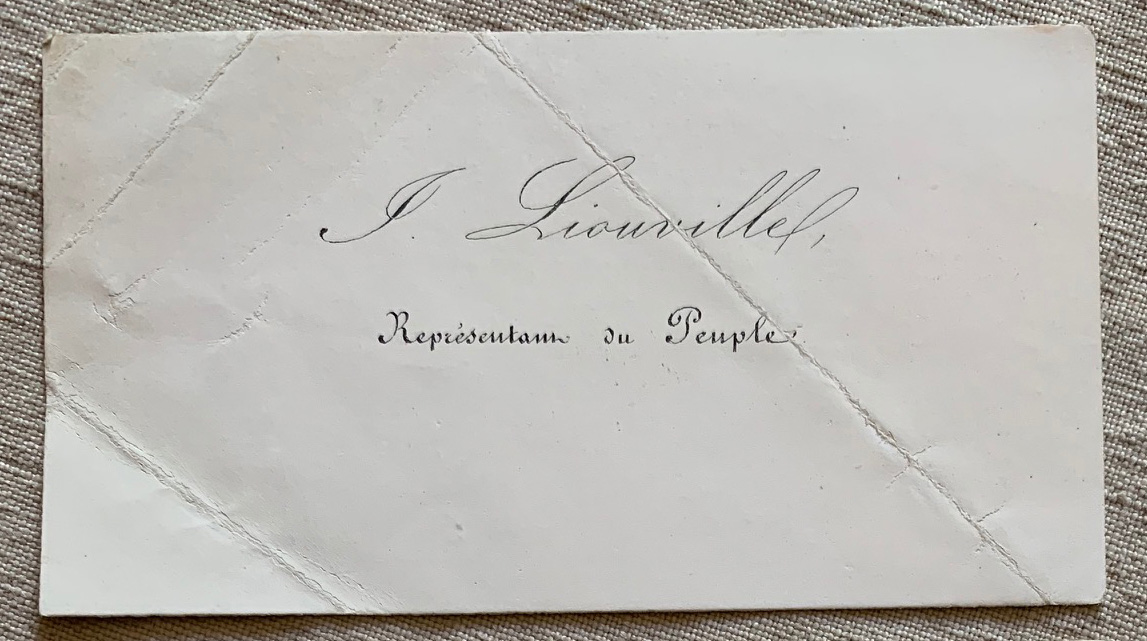 J. Liouville,
Représentant du Peuple.